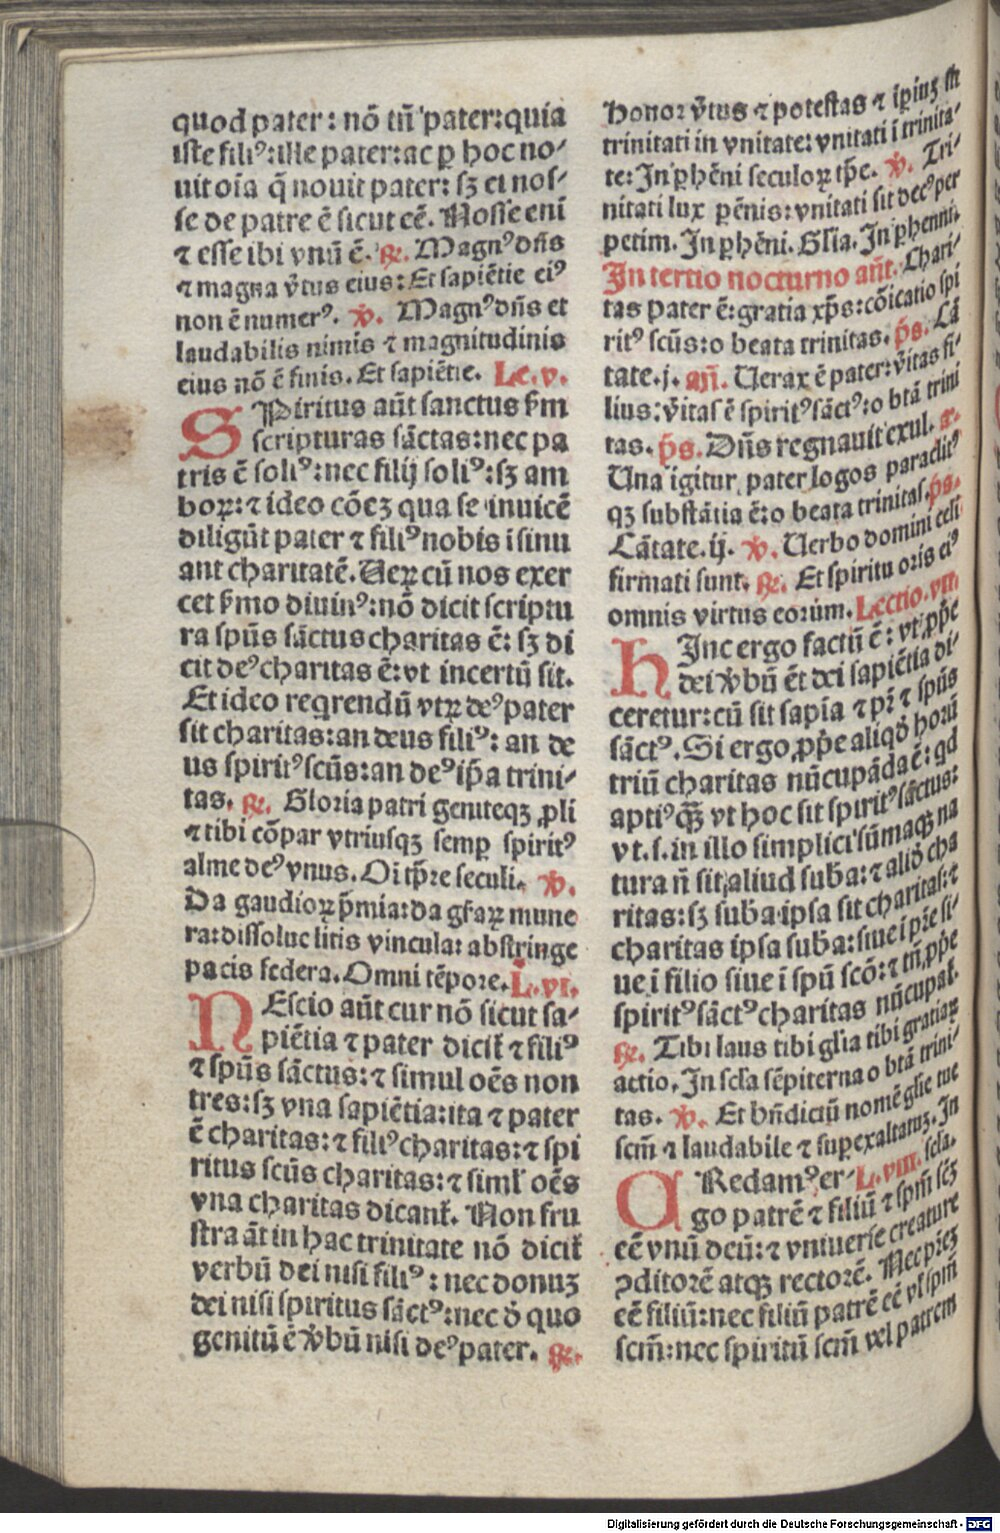 quod pater: nō tn̄ pater: quia
iste filiꝰ: ille pater: ac ꝑ hoc no⸗
uit oīa q̄ nouit pater: sꝫ ei nos⸗
se de patre ē sicut eē. Nosse enī
⁊ esse ibi vnū ē. ℟. Magnꝰ dn̄s
⁊ magna v̄tus eius: Et sapiētie eiꝰ
non ē numerꝰ. ℣. Magnꝰ dn̄s et
laudabilis nimis ⁊ magnitudinis
eius nō ē finis. Et sapiētie. Le. v.
SPiritus aūt sanctus ẜm
scripturas sāctas: nec pa
tris ē soliꝰ: nec filij soliꝰ: sꝫ am
boꝝ: ⁊ ideo cōeꝫ qua se inuicē
diligūt pater ⁊ filiꝰ nobis ī sinu
ant charitatē. Ueꝝ cū nos exer
cet ẜmo diuinꝰ: nō dicit scriptu
ra spūs sāctus charitas ē: sꝫ di
cit deꝰ charitas ē: vt incertū sit.
Et ideo reqrendū vtꝝ deꝰ pater
sit charitas: an deus filiꝰ: an de
us spiritꝰ scūs: an deꝰ ip̄a trini⸗
tas. ℟. Gloria patri geniteqꝫ ꝓli
⁊ tibi cōpar vtriusqꝫ semꝑ spiritꝰ
alme deꝰ vnus. Oī tp̄re seculi. ℣.
Da gaudioꝝ p̄mia: da gr̄aꝝ mune
ra: dissolue litis vincula: abstringe
pacis federa. Omni tēpore. L. vi.
NEscio aūt cur nō sicut sa⸗
piētia ⁊ pater dicit̄ ⁊ filiꝰ
⁊ spūs sāctus: ⁊ simul oēs non
tres: sꝫ vna sapiētia: ita ⁊ pater
ē charitas: ⁊ filiꝰ charitas: ⁊ spi
ritus scūs charitas: ⁊ siml̄ oēs
vna charitas dicant̄. Non fru
stra āt in hac trinitate nō dicit̄
verbū dei nisi filiꝰ: nec donuꝫ
dei nisi spiritus sāctꝰ: nec ð quo
genitū ē v̄bū nisi deꝰ pater. ℟.
Honor v̄tus ⁊ potestas ⁊ īperiuꝫ sit
trinitati in vnitate: vnitati ī trinita⸗
te: In ꝑhēni seculoꝝ tp̄e. ℣. Tri⸗
nitati lux pēnis: vnitati sit decꝰ per
petim. In ꝑhēni. Gl̄ia. In ꝑhenni.
In tertio nocturno an̄t. Chari⸗
tas pater ē: gratia xp̄s: cōicatio spi
ritꝰ scūs: o beata trinitas. p̄s. Cā
tate. j. an̄. Uerax ē pater: v̄itas fi⸗
lius: v̄itas ē spiritꝰ sāctꝰ: o btā trini
tas. p̄s. Dn̄s regnauit exul. a.
Una igitur pater logos paraclitꝰ
qꝫ substātia ē: o beata trinitas. p̄s.
Cātate. ij. ℣. Uerbo domini celi
firmati sunt. ℟. Et spiritu oris eiꝰ
omnis virtus eorum. Lectio. vii.
HInc ergo factū ē: vt ꝓp̄e
dei v̄bū ēt dei sapiētia di⸗
ceretur: cū sit sapīa ⁊ pr̄ ⁊ spūs
sāctꝰ. Si ergo ꝓp̄e aliqð horū
triū charitas nūcupāda ē: qd
aptiꝰ q̄ꝫ vt hoc sit spiritꝰ sāctus:
vt. s. in illo simplici sūmaqꝫ na
tura n̄ sit aliud suba: ⁊ alið cha
ritas: sꝫ suba ipsa sit charitas: ⁊
charitas ipsa suba: siue ī pr̄e si⸗
ue ī filio siue ī spū scō: ⁊ tn̄ ꝓp̄e
spiritꝰ sāctꝰ charitas nūcupat̄.
℟. Tibi laus tibi gl̄ia tibi gratiaꝝ
actio. In scl̄a sēpiterna o btā trini⸗
tas. ℣. Et bn̄dictū nomē gl̄ie tue
scm̄ ⁊ laudabile ⁊ suꝑexaltatuꝫ. In
CRedamꝰ er⸗ L. viii. scl̄a.
go patrē ⁊ filiū ⁊ spm̄ scꝫ
eē vnū deū: ⁊ vniuerse creature
ꝯditorē atqꝫ rectorē. Nec pr̄eꝫ
eē filiū: nec filiū patrē eē vl̄ spm̄
scm̄: nec spiritū scm̄ vel patrem
Digitalisierung gefördert durch die Deutsche Forschungsgemeinschaft - DFG